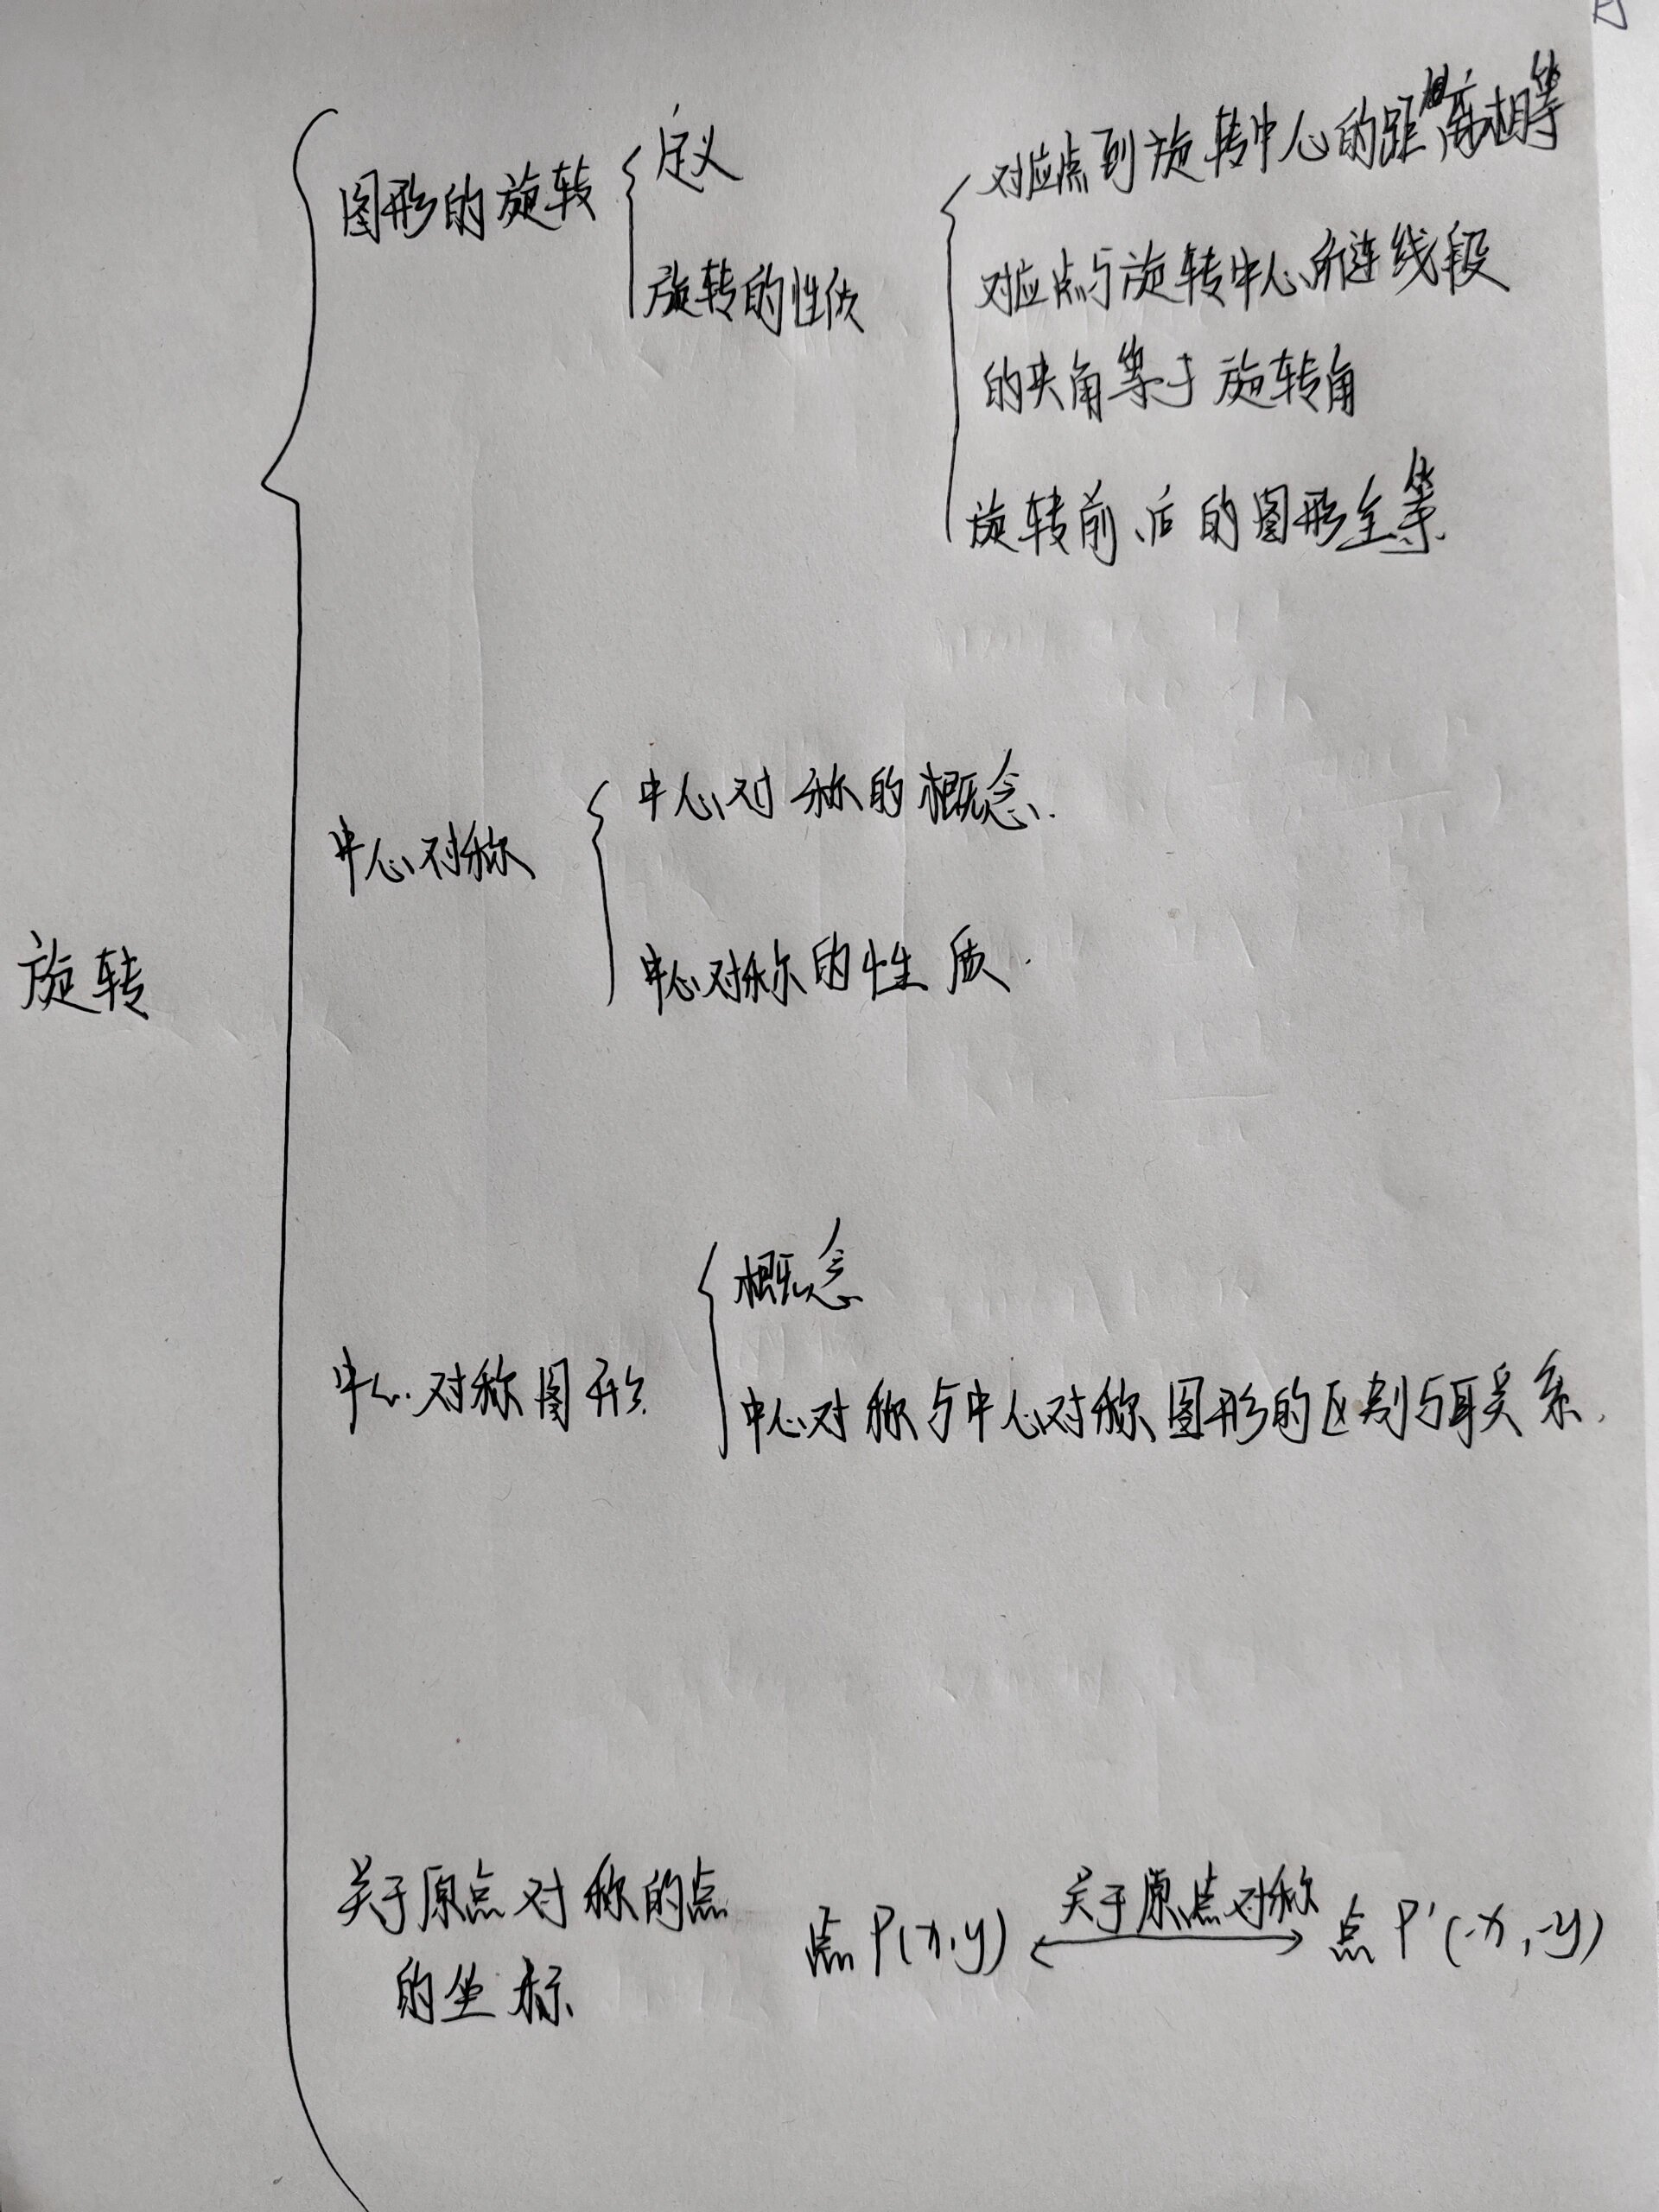 旋转
图形的旋转
定义
旋转的性质
对应点到旋转中心的距离相等
对应点与旋转中心所连线段
的夹角等于旋转角
旋转前、后的图形全等.
中心对称
中心对称的概念.
中心对称的性质.
中心对称图形
概念
中心对称与中心对称图形的区别与联系.
关于原点对称的点
的坐标
点P(x,y) 关于原点对称 点P'(-x,-y)